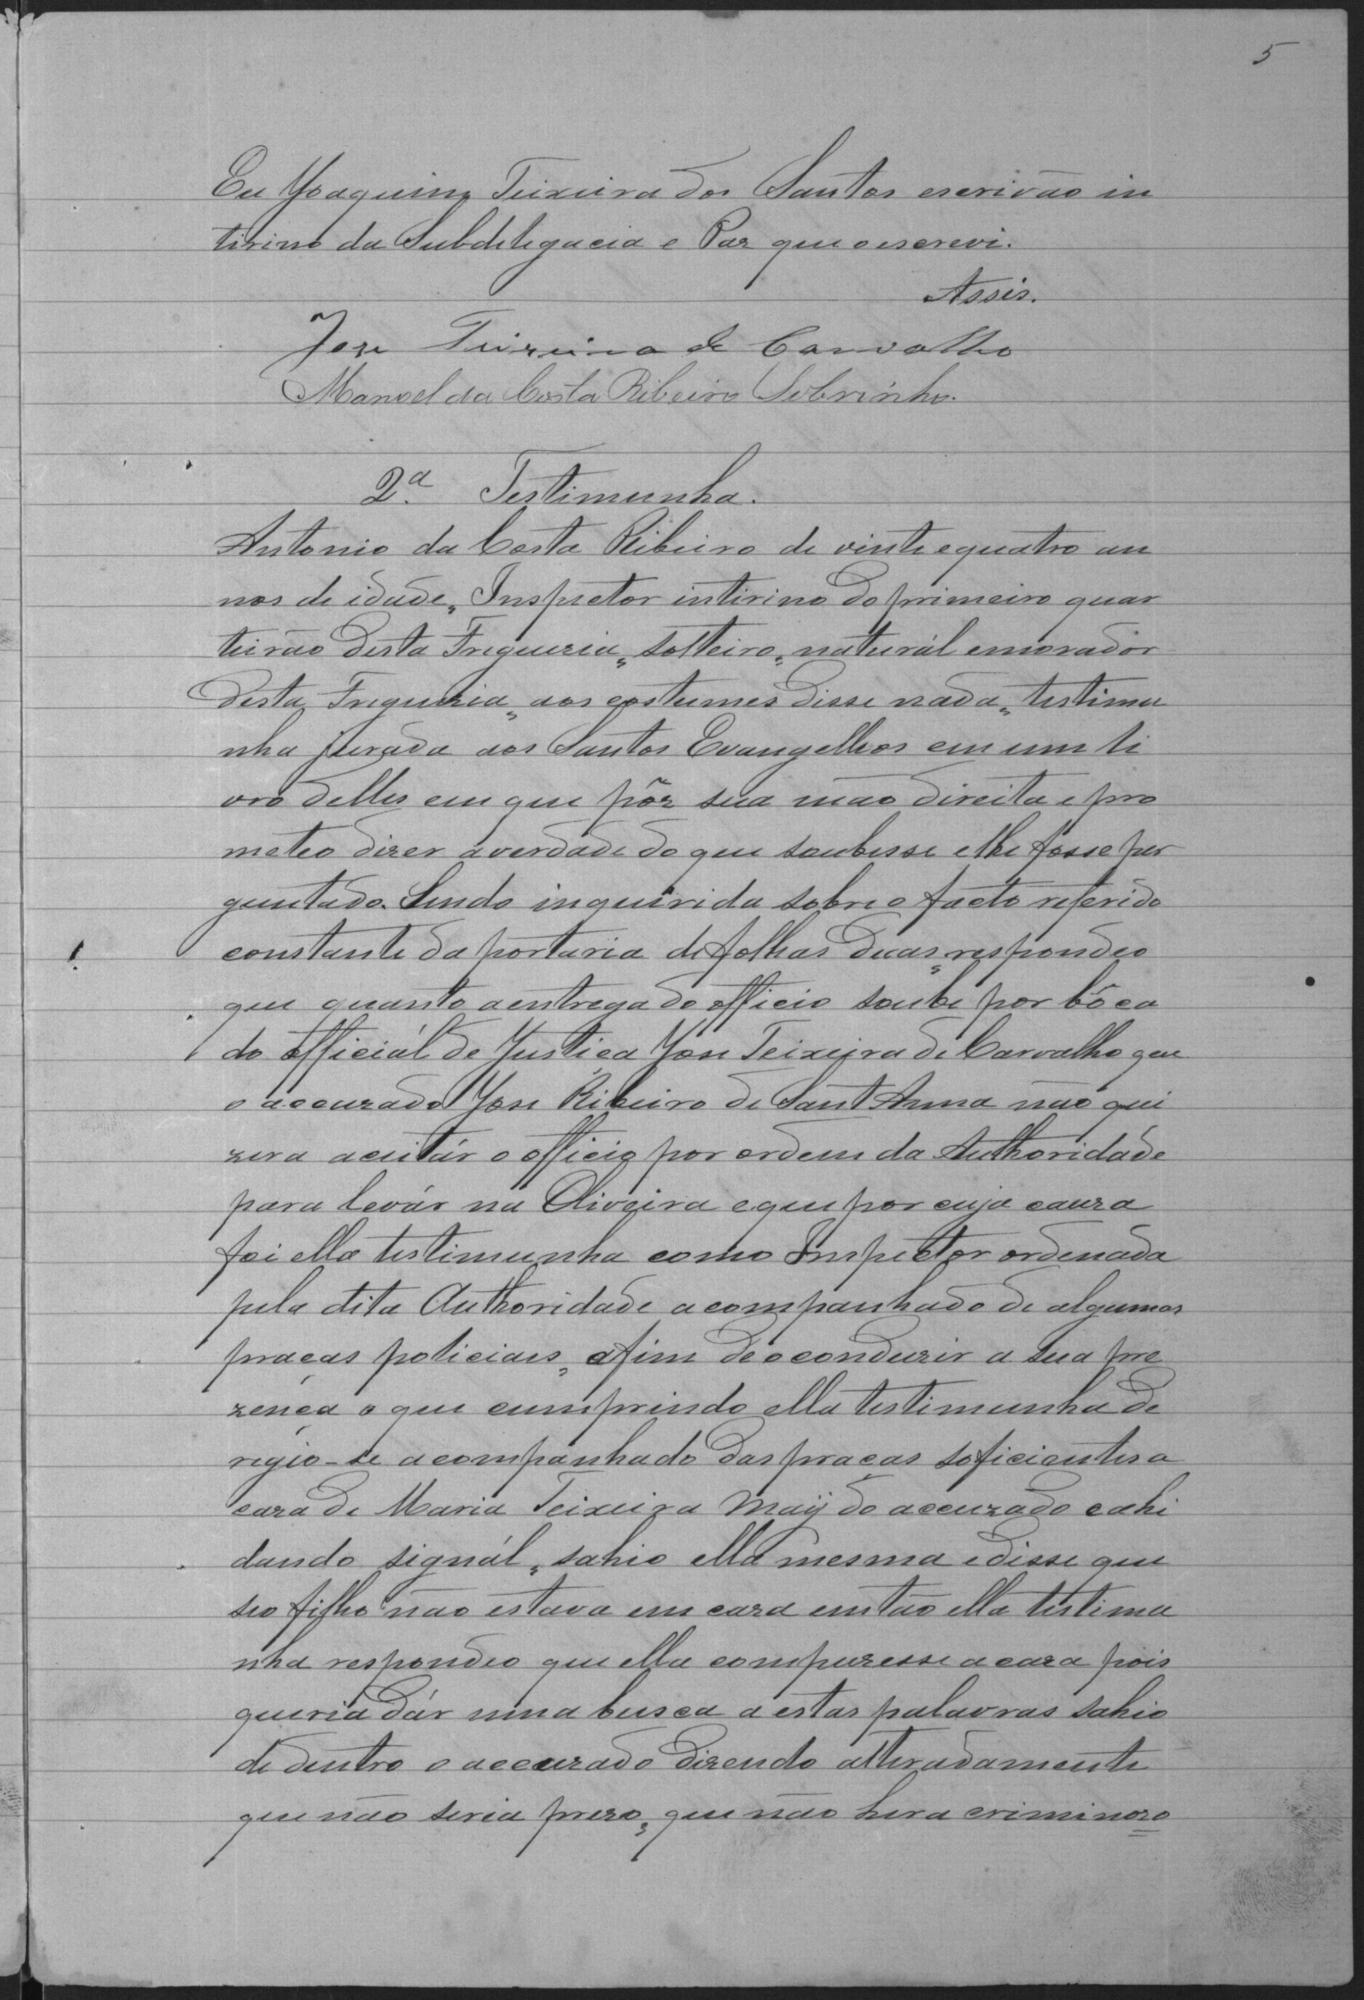 5
Eu Joaquim Teixeira dos Santos escrivão in
tirino da Subdeligacia e Paz que o escrevi.
Assis.
Jose Teixeira de Carvalho
Manoel da Costa Ribeiro Sobrinho.
2.ª Testimunha.
Antonio da Costa Ribeiro de vinte e quatro an
nos de idade, Inspector intirino do primeiro quar
teirão desta Freguezia, solteiro, naturál e morador
desta Freguezia, aos costumes disse nada, testimu
nha jurada aos Santos Evangelhos em um li
vro delles em que pôz sua mão direita e pro
meteo dizer a verdade do que soubesse e lhe fosse per
guntado. Sendo inquirida sobre o facto referido
constante da portaria de folhas duas, respondeo
que quanto a entrega do officio soube por bôca
do officiál de Justiça Jose Teixeira de Carvalho que
o accuzado Jose Ribeiro de Sant Anna não qui
zera aceitár o officio por ordem da Authoridáde
para levár na Oliveira e que por cuja cauza
foi ella testimunha como Inspector ordenada
pela dita Authoridade acompanhado de algumas
praças policiais, afim de o conduzir a sua pre
zença o que cumprindo ella testimunha de
regio-se acompanhado das praças soficientes a
caza de Maria Teixeira Maÿ do accuzado e ahi
dando signál, sahio ella mesma e disse que
seo filho não estava em caza então ella testimu
nha respondeo que ella compuzesse a caza pois
queria dár uma busca a estas palavras sahio
de dentro o accuzado dizendo alteradamente
que não seria prezo, que não hera criminozo